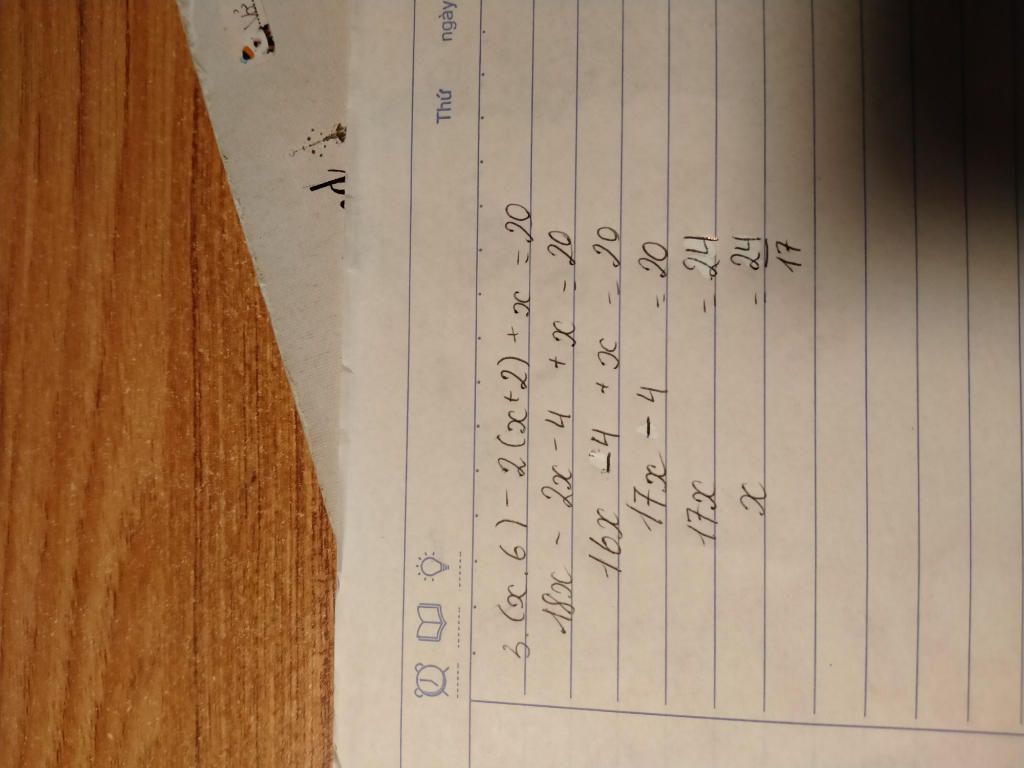 Thứ ngày
3.(x.6) - 2(x+2) + x = 20
18x - 2x - 4 + x = 20
16x - 4 + x = 20
17x - 4 = 20
17x = 24
x = 24/17